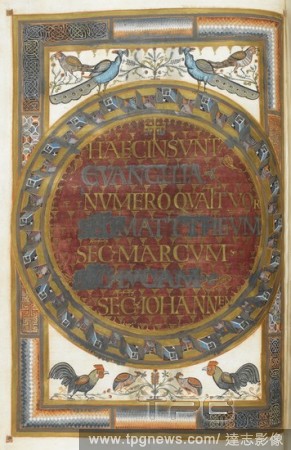 HAEC INSUNT
EVANGELIA
NUMERO QUATTUOR
MATTHEUM
SEC·MARCUM·
SEC·IOHANNEM
TPG
www.tpgnews.com / 達志影像